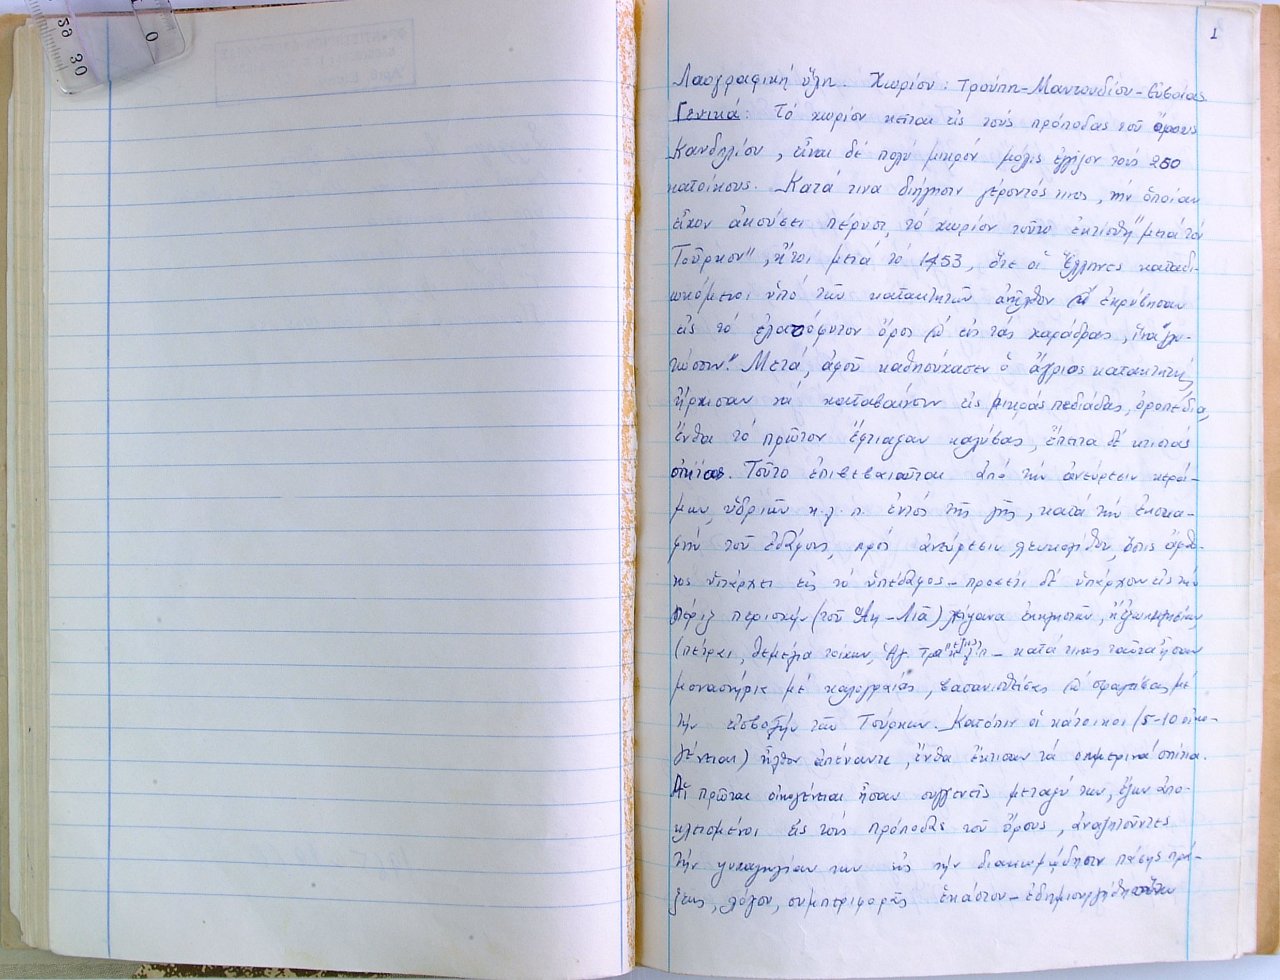 1
Λαογραφική ὕλη. Χωρίον: Τρούπη-Μαντουδίου-Εὐβοίας
Γενικά: Τό χωρίον κεῖται εἰς τούς πρόποδας τοῦ ὄρους
Κανδηλίου, εἶναι δέ πολύ μικρόν μόλις ἐγγίζον τούς 250
κατοίκους. Κατά τινα διήγησιν γέροντός τινος, τήν ὁποίαν
εἶχον ἀκούσει πέρυσι, τό χωρίον τοῦτο ἐκτίσθη "μετά τόν
Τοῦρκον", ἤτοι μετά τό 1453, ὅτε οἱ Ἕλληνες καταδι-
ωκόμενοι ὑπό τῶν κατακτητῶν ἀνῆλθον & ἐκρύβησαν
εἰς τό ἐλατόφυτον ὄρος & εἰς τάς χαράδρας, ἵνα "γλυ-
τώσουν." Μετά, ἀφοῦ καθησύχασεν ὁ ἄγριος κατακτητής,
ἤρχισαν νά καταβαίνουν εἰς μικράς πεδιάδας, ὀροπέδια,
ἔνθα τό πρῶτον ἔφτιαξαν καλύβας, ἔπειτα δέ κτιστάς
οἰκίας. Τοῦτο ἐπιβεβαιοῦται ἀπό τήν ἀνεύρεσιν κερά-
μων, ὑδριῶν κ.λ.π. ἐντός τῆς γῆς, κατά τήν ἐκσκα-
φήν τοῦ ἐδάφους, πρός ἀνεύρεσιν λευκολίθου, ὅστις ἄφθο-
νος ὑπάρχει εἰς τό ὑπέδαφος - προσέτι δέ ὑπάρχουν εἰς τήν
πέριξ περιοχήν (τοῦ Ἁη-Λιᾶ) λείψανα ἐκκλησιῶν, ἤ ἐξωκκλησίων
(πέτραι, θεμέλια τοίχων, Ἁγ. - κατά τινας ταῦτα ἦσαν
μοναστήρια μέ καλογραίας, βασανισθείσας & σφαγείσας μέ
τήν εἰσβολήν τῶν Τούρκων. Κατόπιν οἱ κάτοικοι (5-10 οἰκο-
γένειαι) ἦλθον ἀπέναντι, ἔνθα ἔκτισαν τά σημερινά σπίτια.
Αἱ πρῶται οἰκογένειαι ἦσαν συγγενεῖς μεταξύ των, ἔζων ἀπο-
κλεισμένοι εἰς τούς πρόποδας τοῦ ὄρους, ἀναζητοῦντες
τήν ψυχαγωγίαν των εἰς τήν διακωμώδησιν πάσης πρά-
ξεως, λόγου, συμπεριφορᾶς ἑκάστου - ἐδημιουργήθη οὕτω